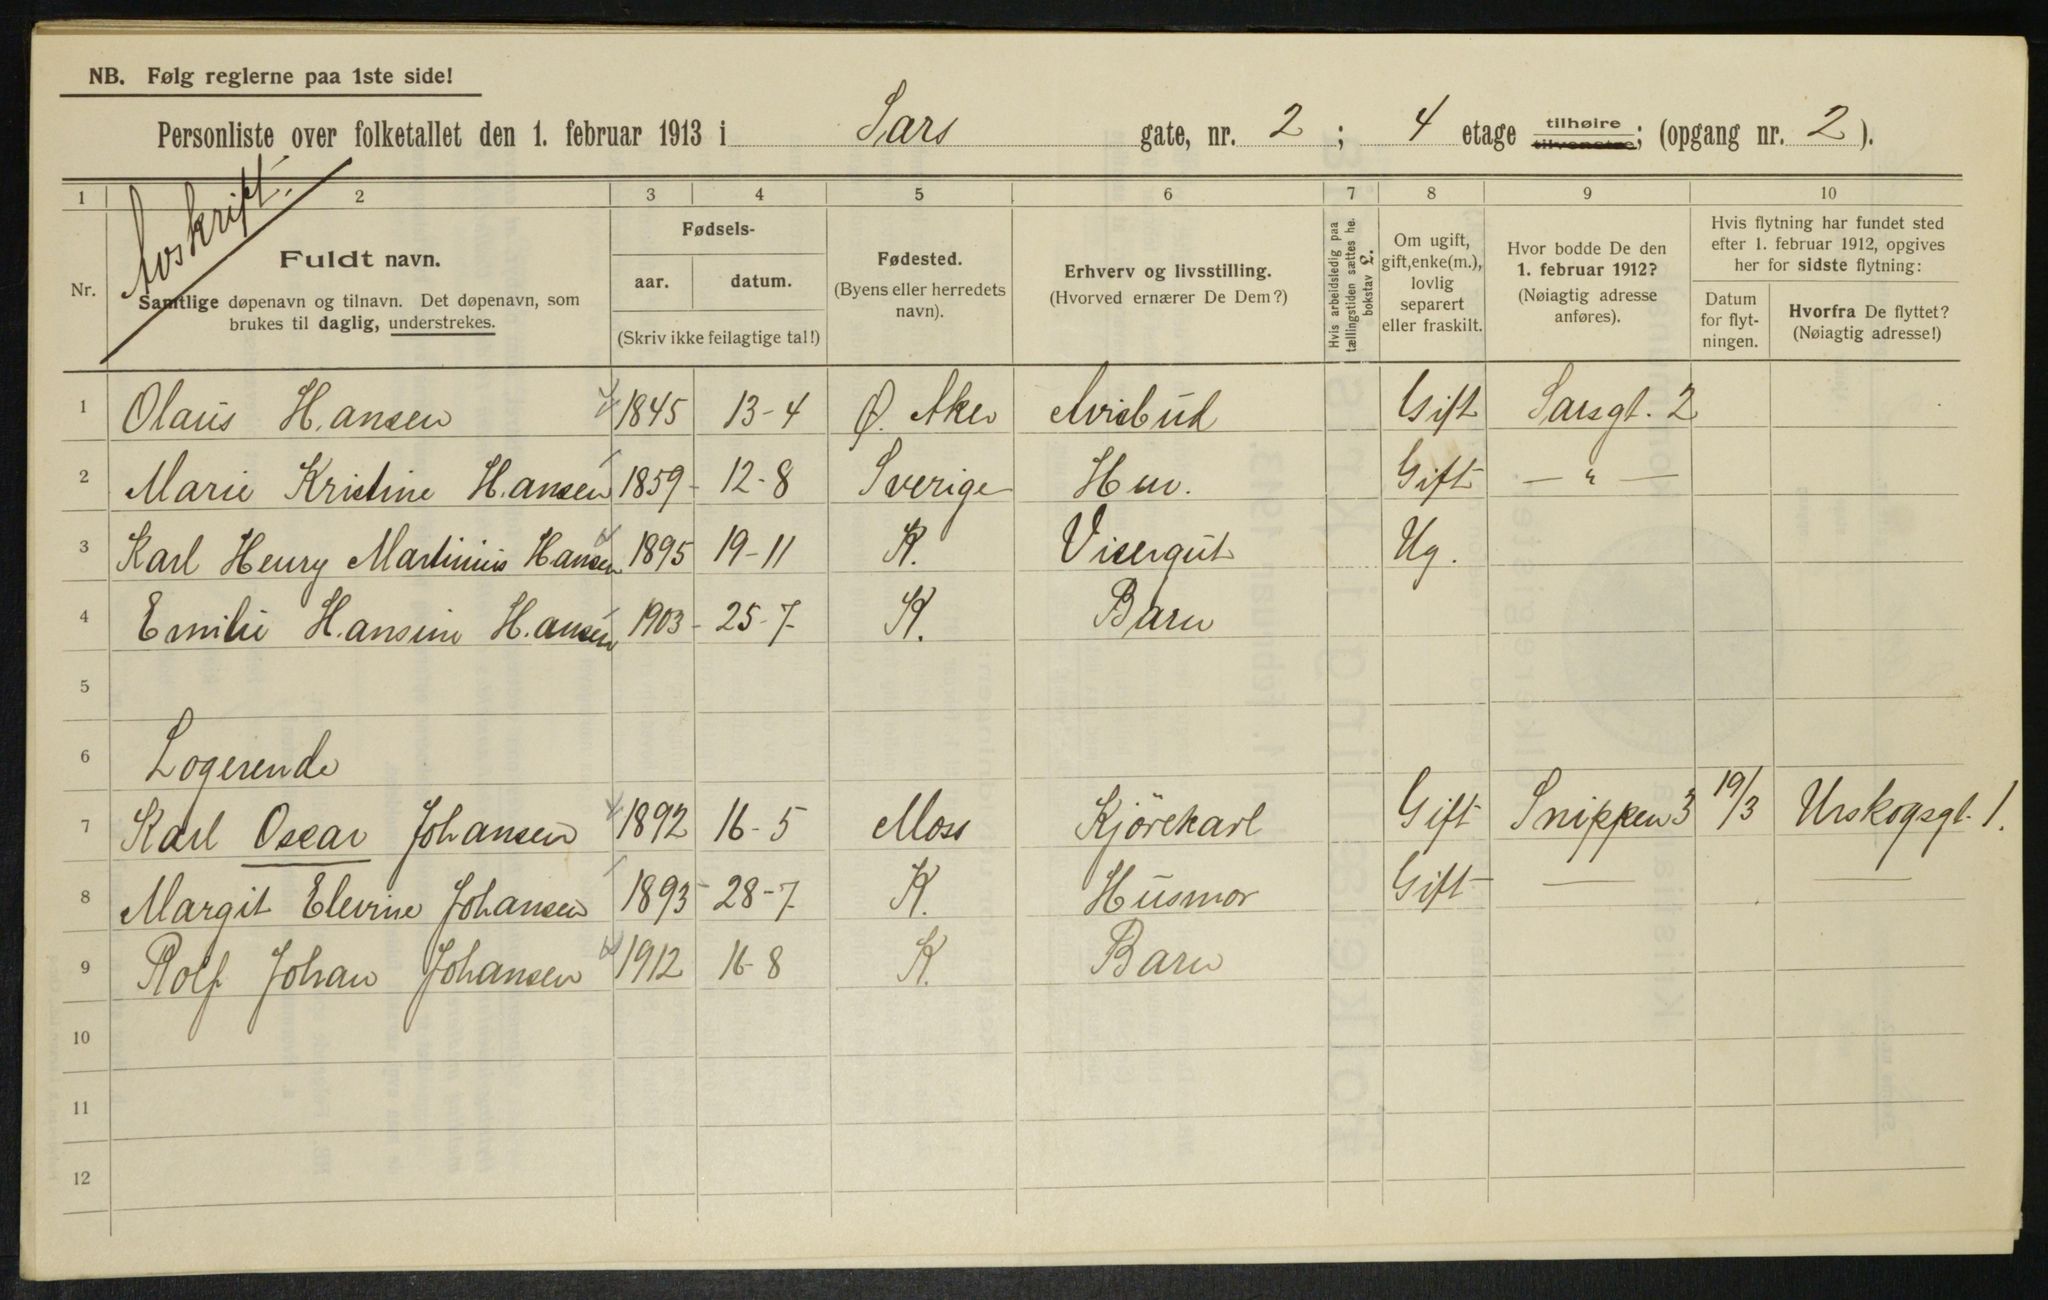 NB. Følg reglerne paa 1ste side!
Personliste over folketallet den 1. februar 1913 i Sars gate, nr. 2 ; 4 etage tilhøire tilvenstre; (opgang nr. 2 ).
Avskrift.
1 2 3 4 5 6 7 8 9 10
Nr.
Fuldt navn.
Samtlige døpenavn og tilnavn. Det døpenavn, som
brukes til daglig, understrekes.
Fødsels-
aar. datum.
(Skriv ikke feilagtige tal!)
Fødested.
(Byens eller herredets
navn).
Erhverv og livsstilling.
(Hvorved ernærer De Dem?)
Hvis arbeidsledig paa
tællingstiden sættes he.
bokstav L.
Om ugift,
gift, enke(m.),
lovlig
separert
eller fraskilt.
Hvor bodde De den
1. februar 1912?
(Nøiagtig adresse
anføres).
Hvis flytning har fundet sted
efter 1. februar 1912, opgives
her for sidste flytning:
Datum
for flyt-
ningen.
Hvorfra De flyttet?
(Nøiagtig adresse!)
1 Olaus Hansen 1845 13-4 Ø. Aker Avisbud Gift Sarsgt. 2
2 Marie Kristine Hansen 1859- 12-8 Sverige Hm. Gift — " —
3 Karl Henry Martinius Hansen 1895 19-11 K. Visergut Ug.
4 Emilie Hansine Hansen 1903- 25-7 K. Barn
5
6 Logerende
7 Karl Oscar Johansen 1892 16-5 Moss Kjörekarl Gift Snippen 3 19/3 Urskogsgt. 1.
8 Margit Elevine Johansen 1893- 28-7 K. Husmor Gift — —
9 Rolf Johan Johansen 1912 16-8 K. Barn
10
11
12